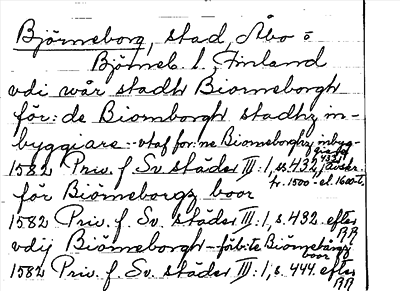 Björneborg, stad, Åbo o
Björneb. l. Finland
vdi wår stadh Biorneborgh
för: de Biornborgh stadhz in-
byggiare - vtaf for:ne Biorneborghz inbyg-
giare
1582 Priv. f. Sv. städer III: 1, s. 432, 433,
tr. 1500- el. 1600-t.
för Biörneborgz boor
1582 Priv. f. Sv. städer III: 1, s. 432 efter RR
vdij Biörneborgh - förb:te Biörneborgz
boor
1582 Priv. f. Sv. städer III: 1, s. 444 efter
RR